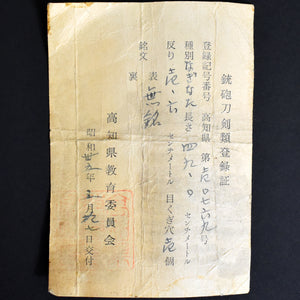 銃砲刀剣類登録証
登録記号番号 高知県 第壱〇七六九号
種別 なぎなた 長さ 四九、〇 センチメートル
反り 壱、六 センチメートル 目くぎ穴 壱個
銘文 表 無銘
裏
高知県教育委員会
昭和卅五年 月 七日交付